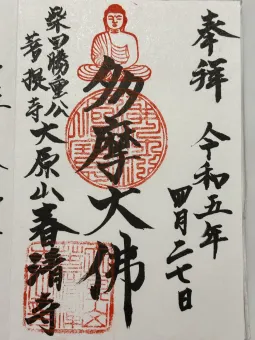 奉拝 令和五年
四月二七日
多摩大佛
柴田勝重公
菩提寺 大原山春清寺